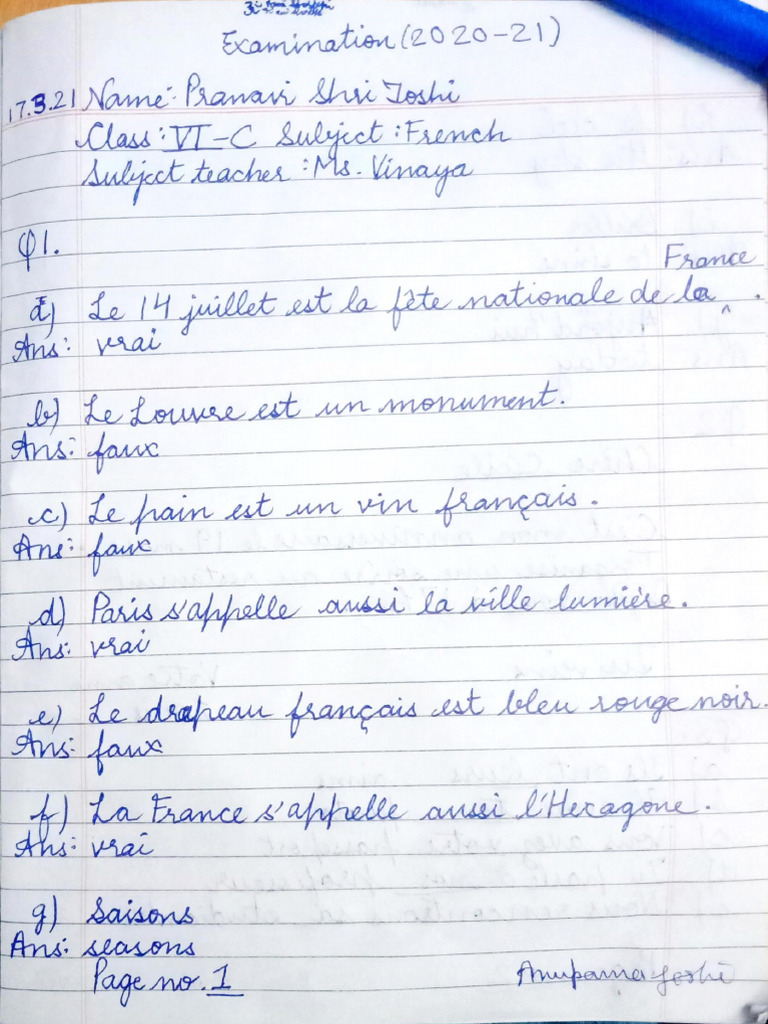 Examination (2020-21)
17.3.21 Name: Pranavi Shri Joshi
Class: VI-C Subject: French
Subject teacher: Ms. Vinaya
Q1.
a) Le 14 juillet est la fête nationale de la France.
Ans: vrai
b) Le Louvre est un monument.
Ans: faux
c) Le pain est un vin français.
Ans: faux
d) Paris s'appelle aussi la ville lumière.
Ans: vrai
e) Le drapeau français est bleu rouge noir.
Ans: faux
f) La France s'appelle aussi l'Hexagone.
Ans: vrai
g) saisons
Ans: seasons
Page no. 1
Anupama Joshi